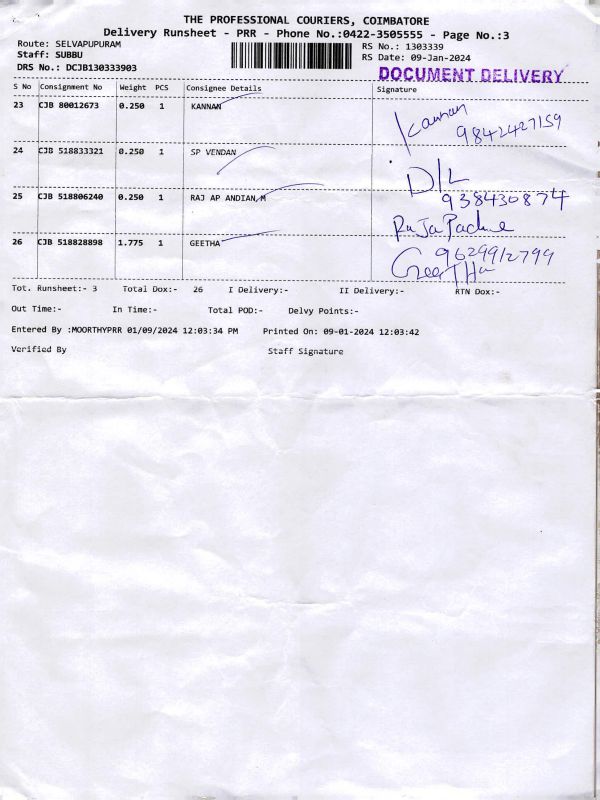 THE PROFESSIONAL COURIERS, COIMBATORE
Delivery Runsheet - PRR - Phone No.:0422-3505555 - Page No.:3
Route: SELVAPUPURAM
RS No.: 1303339
Staff: SUBBU
RS Date: 09-Jan-2024
DRS No.: DCJB130333903
DOCUMENT DELIVERY
S No Consignment No Weight PCS Consignee Details Signature
23 CJB 80012673 0.250 1 KANNAN
Kannan
9842427159
24 CJB 518833321 0.250 1 SP VENDAN
D/L
938430874
25 CJB 518806240 0.250 1 RAJ AP ANDIAN,M
26 CJB 518828898 1.775 1 GEETHA
9629912799
GeeTHa
Tot. Runsheet:- 3 Total Dox:- 26 I Delivery:- II Delivery:- RTN Dox:-
Out Time:- In Time:- Total POD:- Delvy Points:-
Entered By :MOORTHYPRR 01/09/2024 12:03:34 PM Printed On: 09-01-2024 12:03:42
Verified By Staff Signature